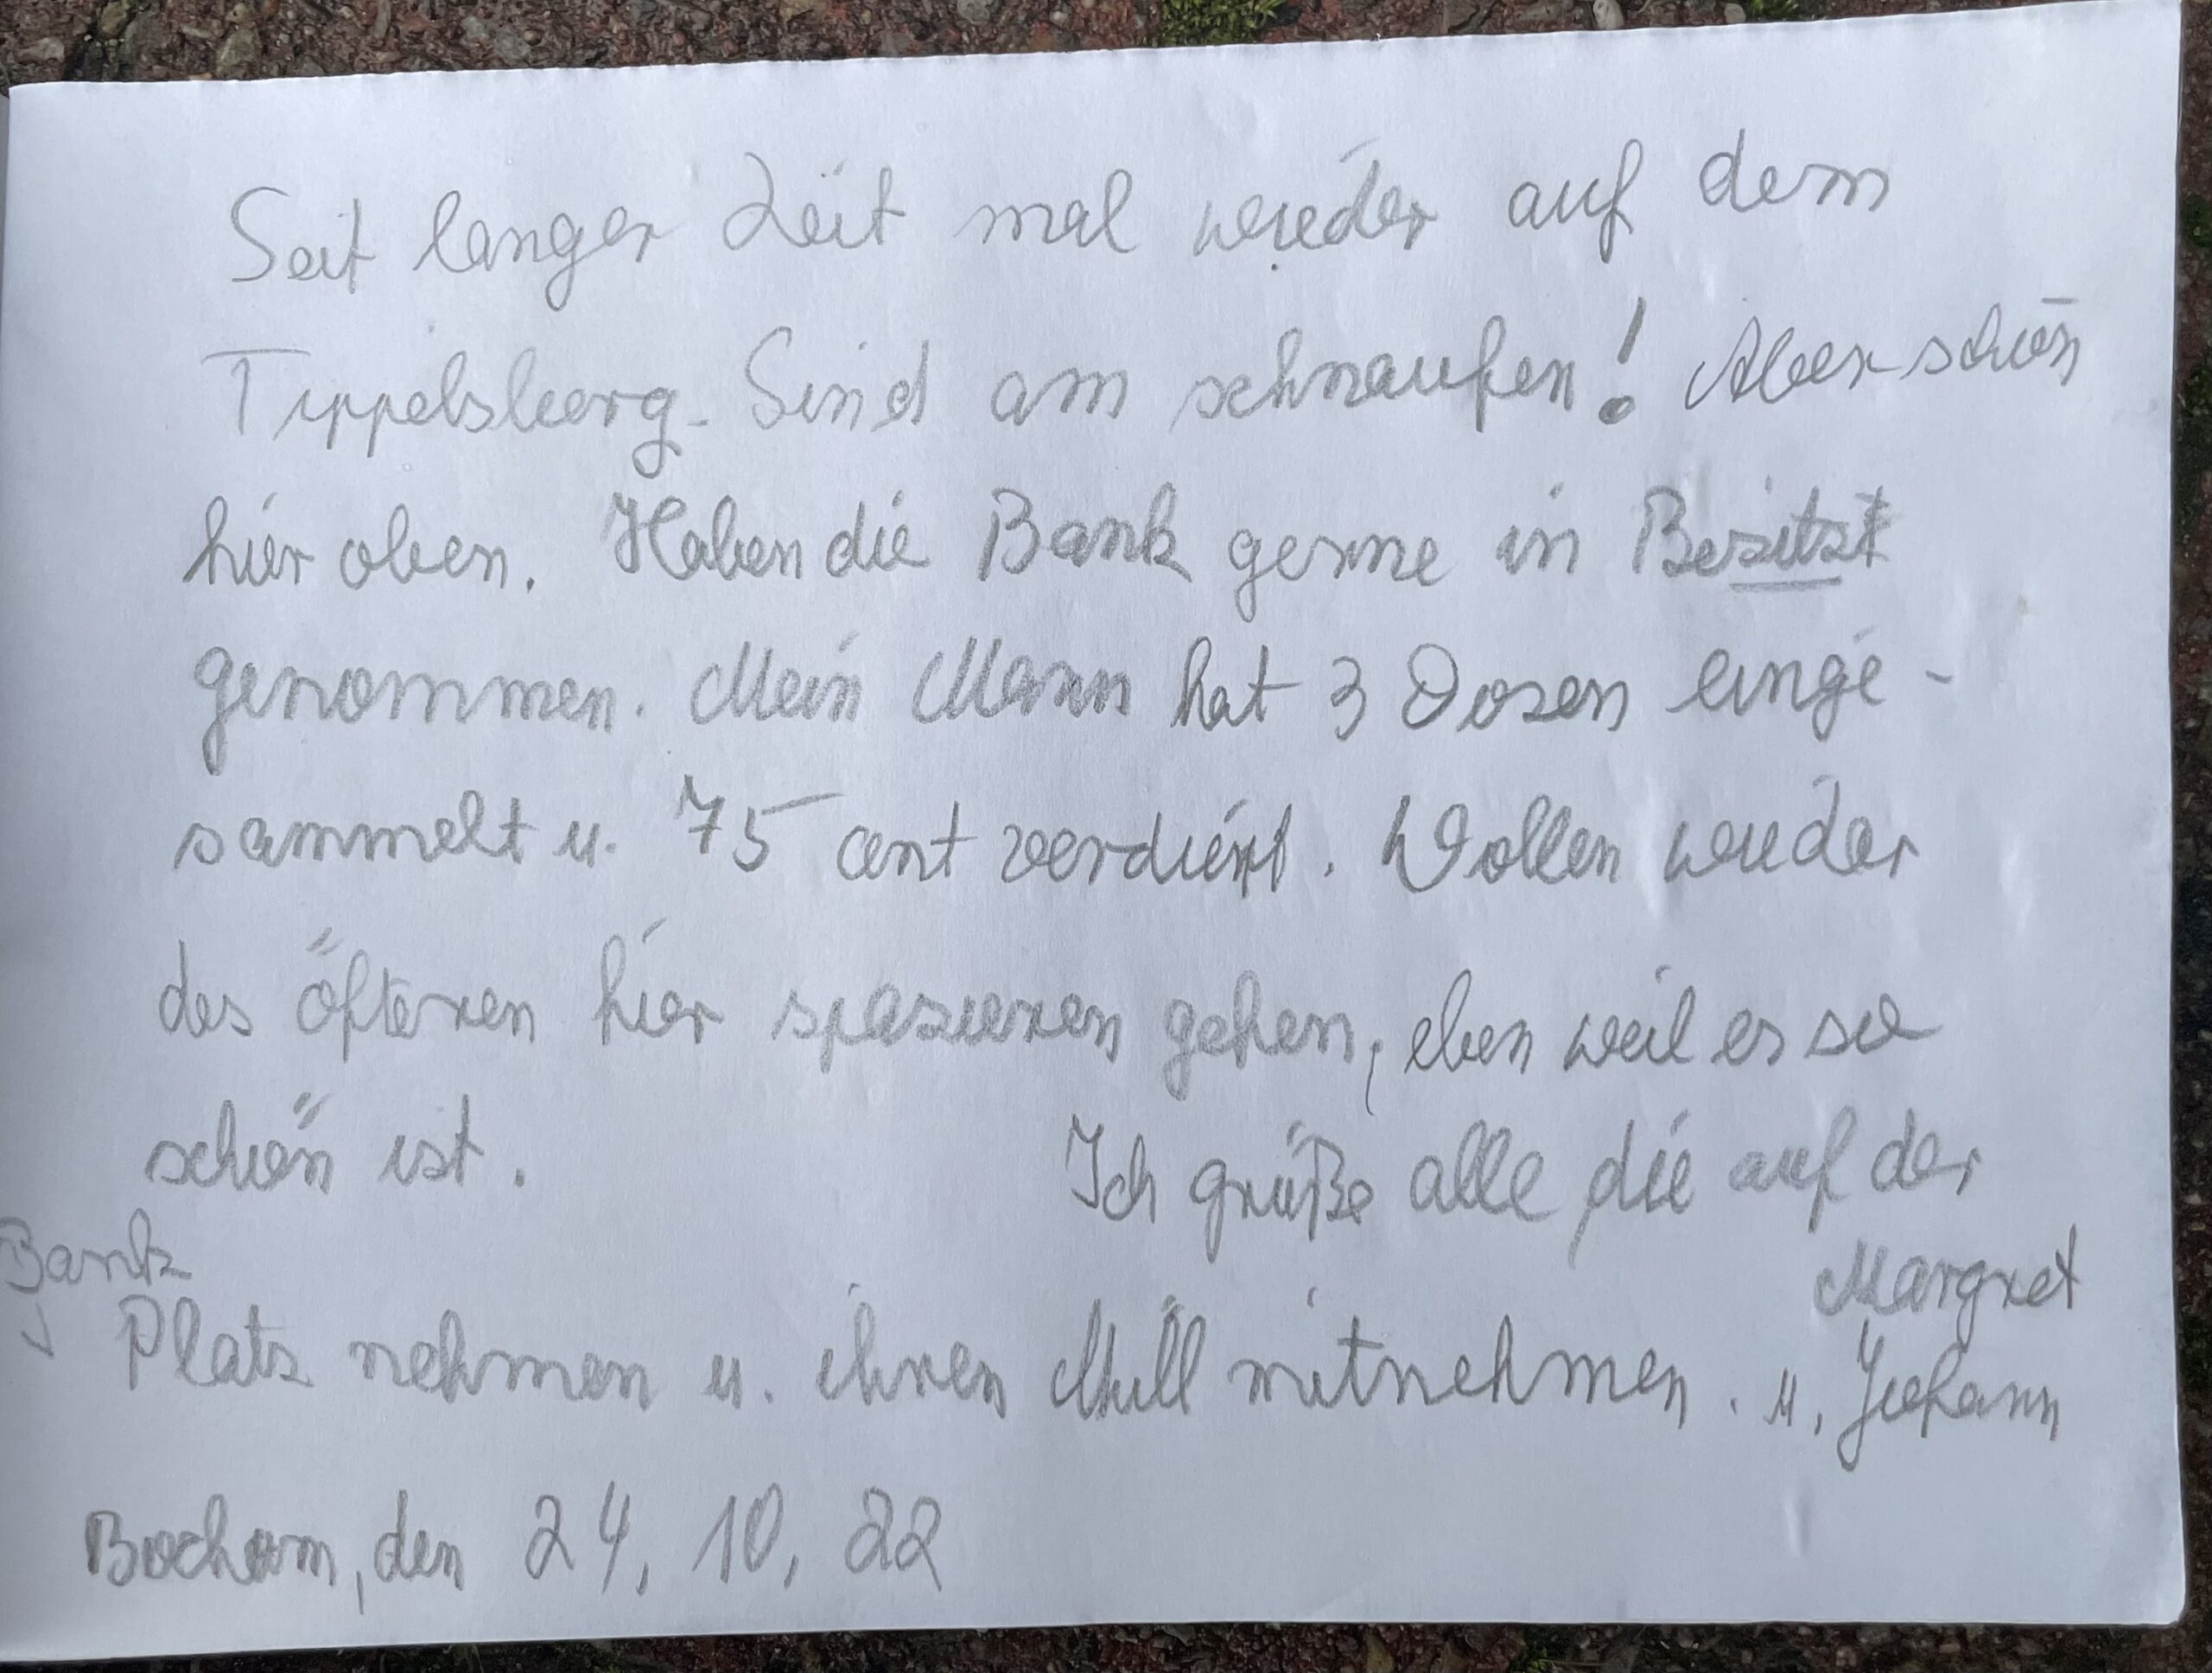 Seit langer Zeit mal wieder auf dem
Tippelsberg. Sind am schnaufen! Aber schön
hier oben. Haben die Bank gerne in Besitz
genommen. Mein Mann hat 3 Dosen einge-
sammelt u. 75 cent verdient. Wollen wieder
des öfteren hier spazieren gehen, eben weil es so
schön ist. Ich grüße alle die auf der
Bank
Platz nehmen u. ihren Müll mitnehmen. Margret
u. Johann
Bochum, den 24, 10, 22